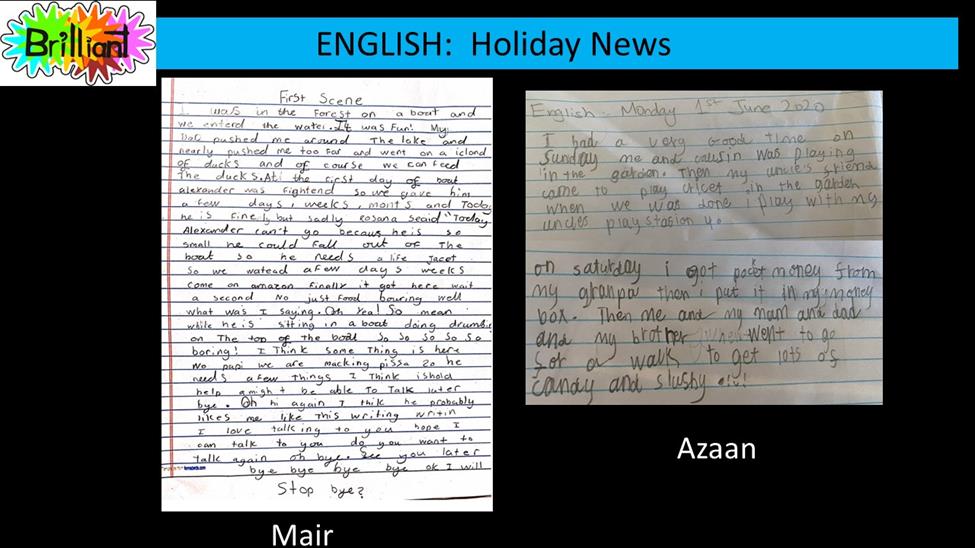 Brilliant
ENGLISH: Holiday News
First Scene
I was in the forest on a boat and
we enterd the water. It was fun! My
pushed me around The lake and
nearly pushed me too far and went on a iclond
of ducks and of course we can feed
The ducks. At the first day of boat
alexander was fightend so we gave him
a few days, weeks, monts and Today
he is fine, but sadly Rosana seaid "Today
Alexander can't go becaus he is so
small he could fall out of The
boat so he needs a life jacet
So we watead a few days weeks
come on amazon finally it got here wait
a second No just food bouring well
what was I saying. Oh Yea! So mean
while he is sitting in a boat doing drumbi
on The top of the boat So So So So So
boring! I Think some Thing is here
No papi we are macking pissa so he
needs a few things I Think ishold
help amight be able To Talk later
bye. Oh hi again I thik he probably
likes me like this writing writin
I love talking to you hope I
can talk to you do you want to
talk again oh bye. See you later
bye bye bye bye ok I will
Stop bye?
Mair
English:- Monday 1st June 2020
I had a very Good time on
Sunday me and causin was playing
in the gardon. Then my uncle's friend
came to play cricet in the garden
when we was done i play with my
uncles playstasion 4.
on saturday i got pocket money from
my granpa then i put it in my money
box. Then me and my mam and dad
and my brother went to go
for a walk to get lots of
candy and slushy
Azaan